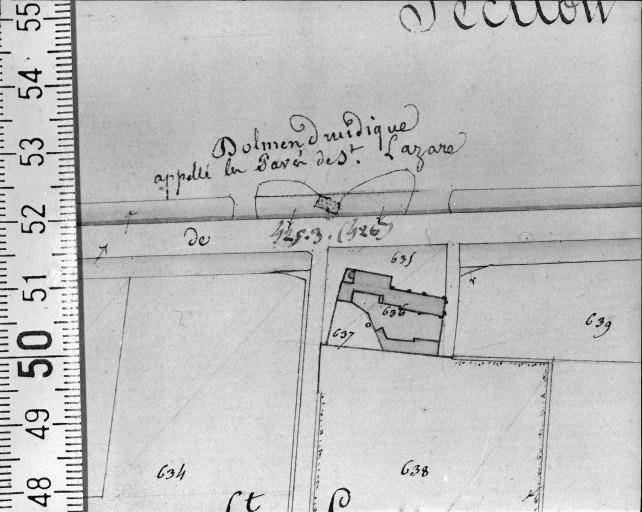 Section
Dolmen druidique
appellé les Pavés de St. Lazare
de
425.3. (426)
635
636
637
639
634
638
St P
55
54
53
52
51
50
49
48